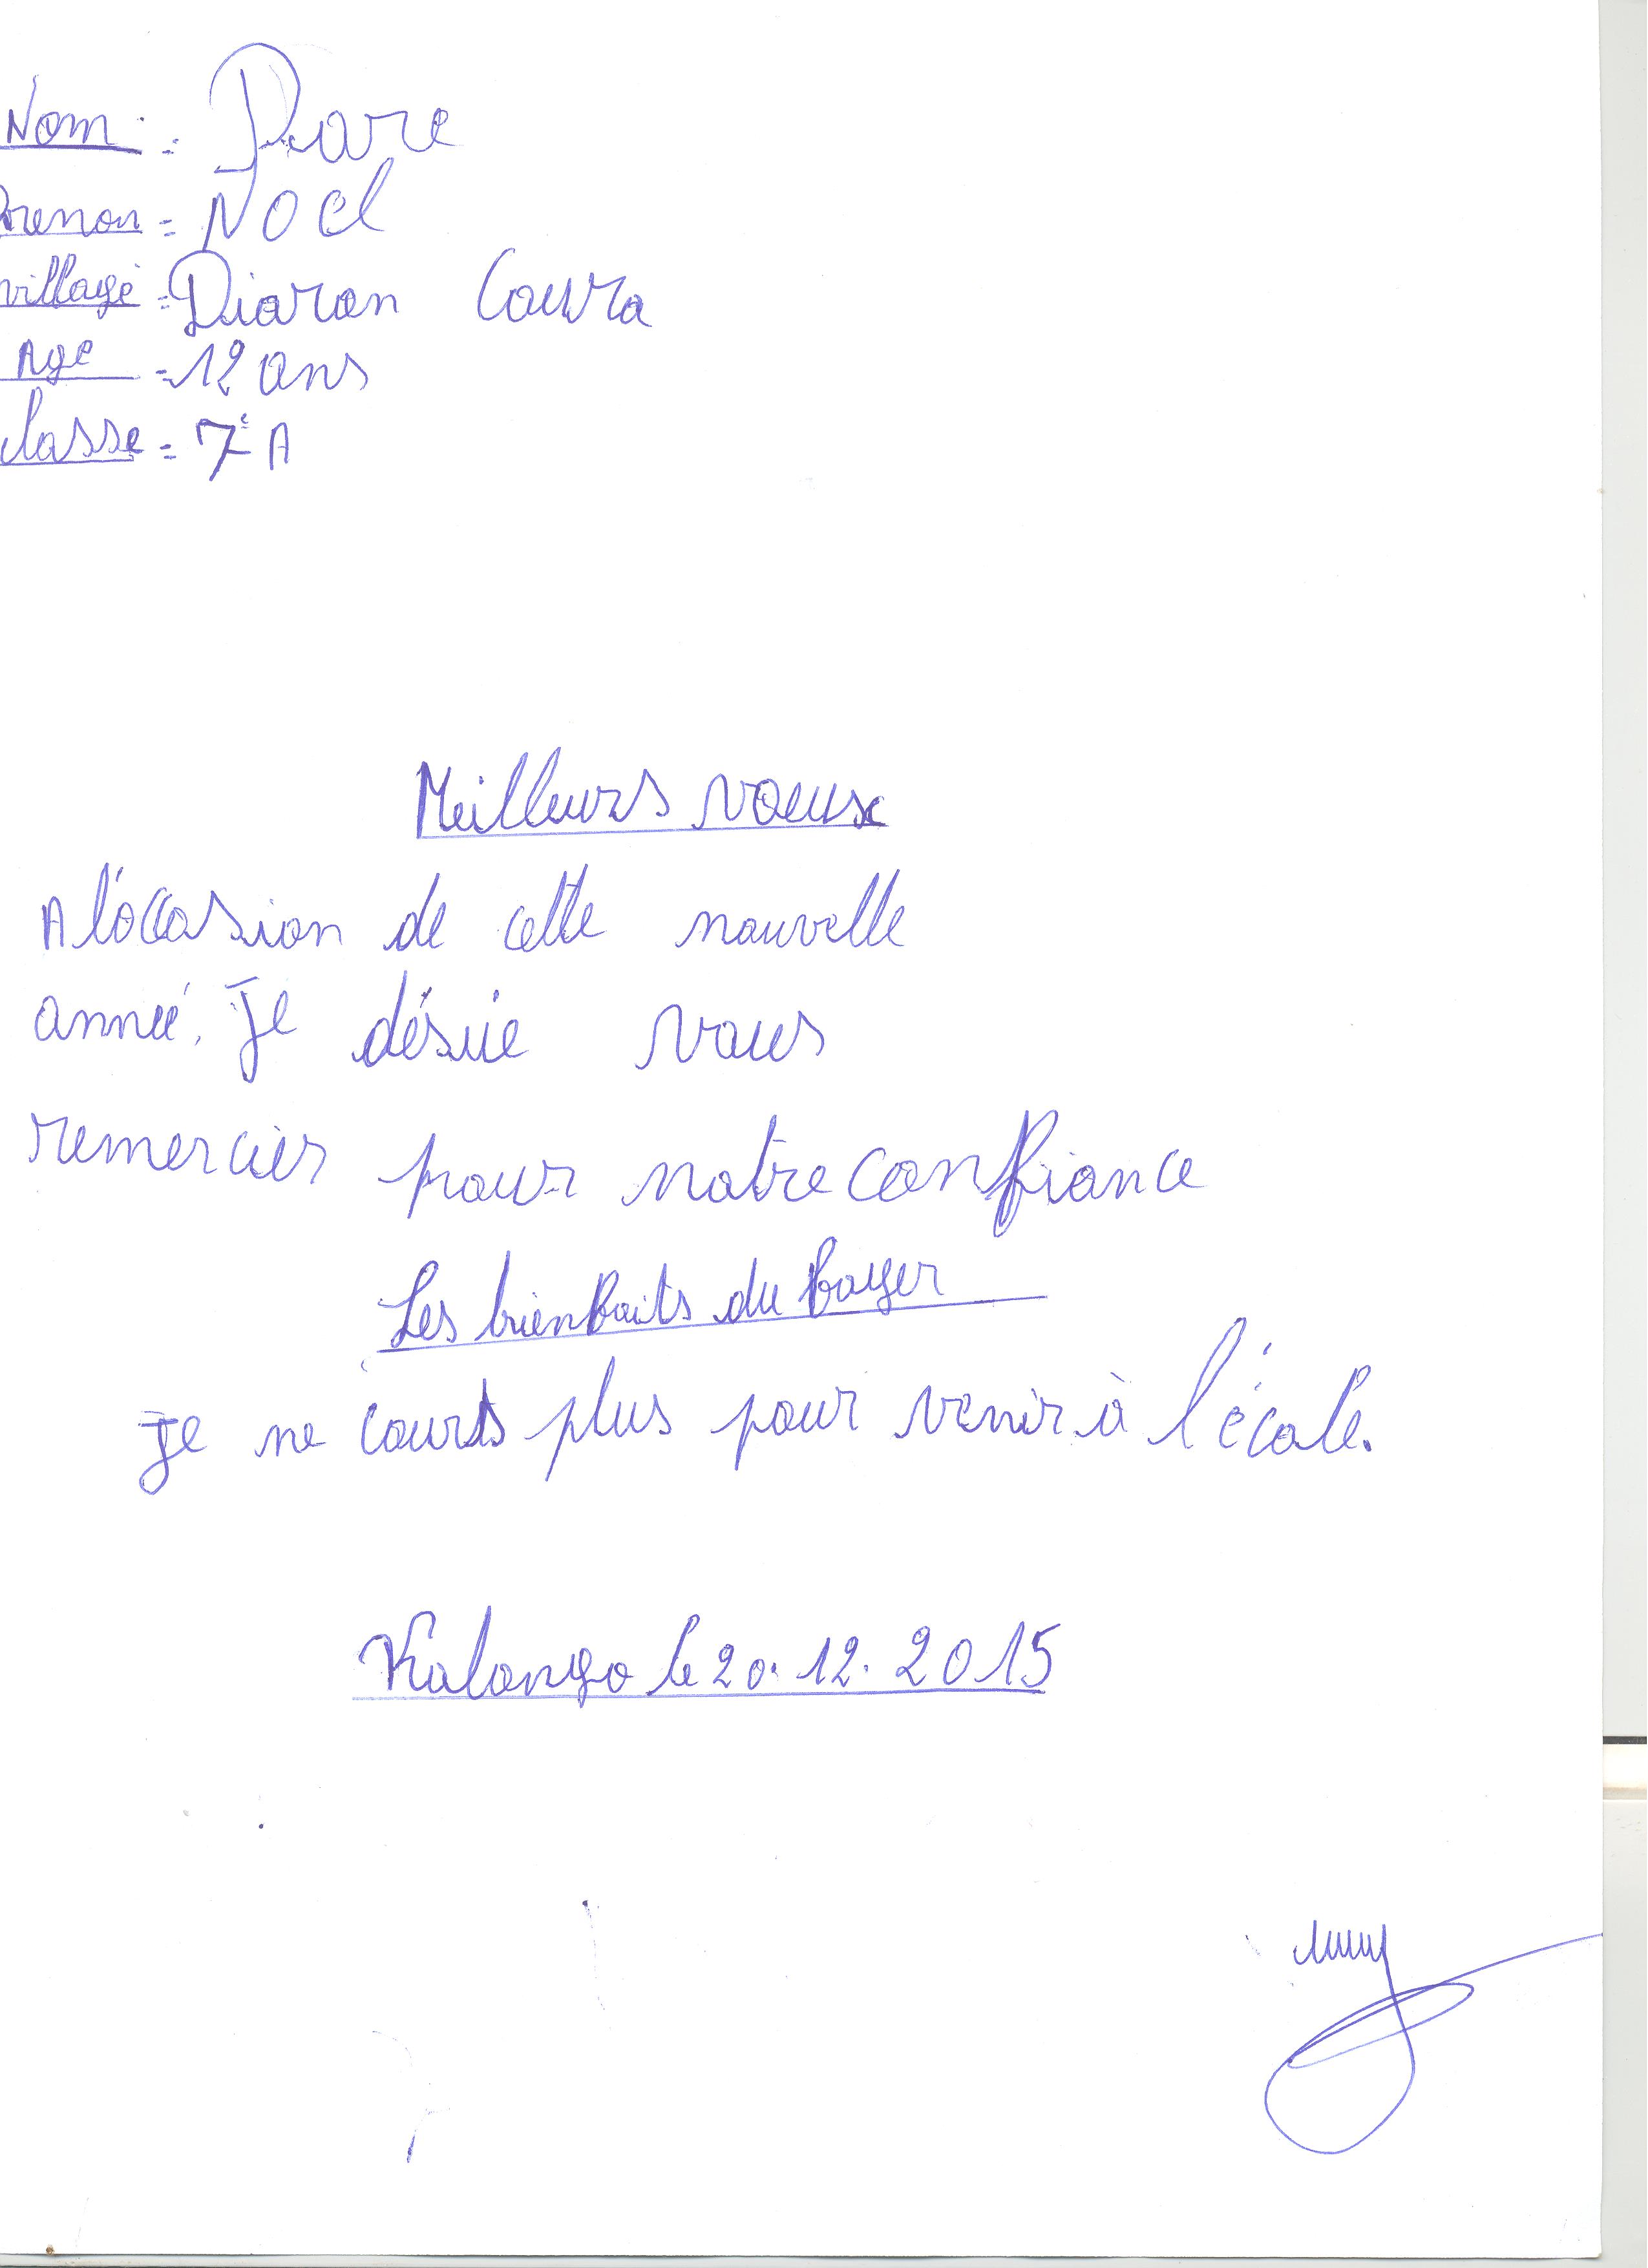 Nom : Diarre
Prenom = NOEl
village = Diaran Coura
Age = 12 ans
classe = 7è A
Meilleurs voeux
A l'occasion de cette nouvelle
année, Je désire vous
remercier pour notre confiance
Les bienfaits du foyer
Je ne cours plus pour venir à l'école.
Kolongo le 20.12.2015